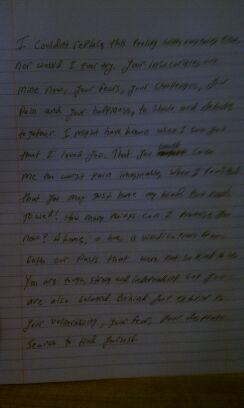 I couldn't replace this feeling with anything else,
nor would I ever try. Your insecurities are
mine now, your fears, your challenges, your
pain and your happiness, to share and debate
together. I might have known when I saw you
that I loved you. That you could cause
me the worst pain imaginable, when I realized
that you may just have my
How many things can I promise you
now? A home, a
both our pasts that were not so kind to us.
You are tough, strong and independent but you
are also beloved. Behind your exterior is
your vulnerability, your fear, your desperate
search to find yourself.